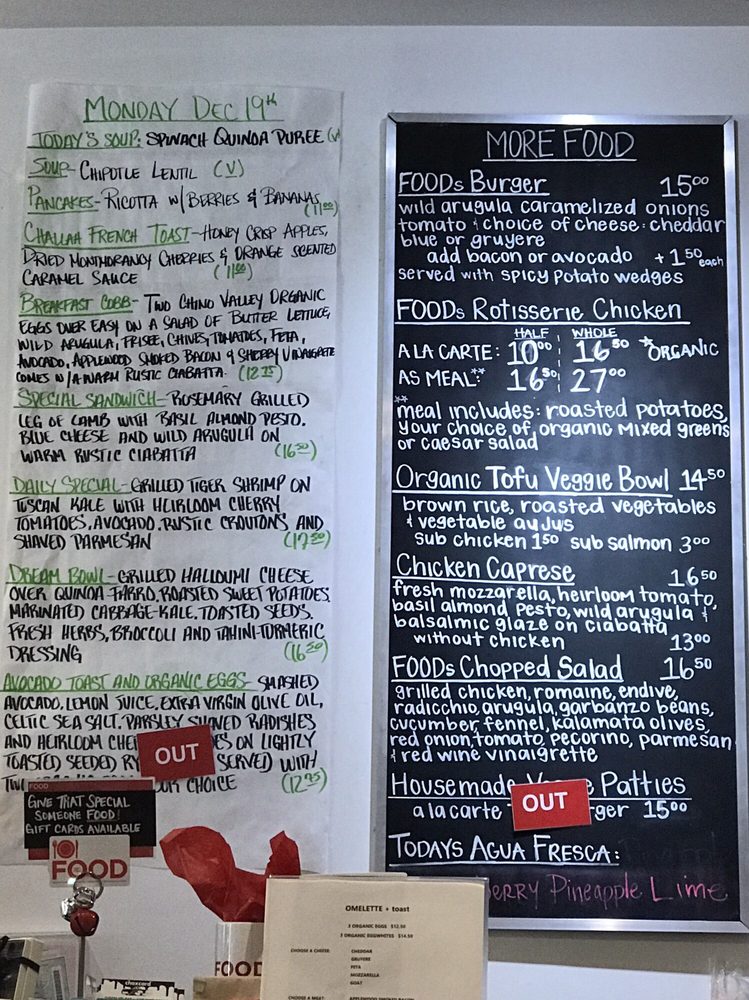 MONDAY DEC 19th
TODAY'S SOUP: SPINACH QUINOA PUREE (V)
SOUP- CHIPOTLE LENTIL (V)
PANCAKES- RICOTTA W/BERRIES & BANANAS
(11.00)
CHALLAH FRENCH TOAST- HONEY CRISP APPLES,
DRIED MONTMORANCY CHERRIES & ORANGE SCENTED
CARAMEL SAUCE (11.00)
BREAKFAST COBB- TWO CHINO VALLEY ORGANIC
EGGS OVER EASY ON A SALAD OF BUTTER LETTUCE,
WILD ARUGULA, FRISEE, CHIVES, TOMATOES, FETA,
AVOCADO, APPLEWOOD SMOKED BACON & SHERRY VINAIGRETTE
COMES W/A WARM RUSTIC CIABATTA. (12.75)
SPECIAL SANDWICH- ROSEMARY GRILLED
LEG OF LAMB WITH BASIL ALMOND PESTO.
BLUE CHEESE AND WILD ARUGULA ON
WARM RUSTIC CIABATTA (16.50)
DAILY SPECIAL- GRILLED TIGER SHRIMP ON
TUSCAN KALE WITH HEIRLOOM CHERRY
TOMATOES, AVOCADO, RUSTIC CROUTONS AND
SHAVED PARMESAN (17.50)
DREAM BOWL- GRILLED HALLOUMI CHEESE
OVER QUINOA-FARRO, ROASTED SWEET POTATOES.
MARINATED CABBAGE-KALE. TOASTED SEEDS.
FRESH HERBS, BROCCOLI AND TAHINI-TURMERIC
DRESSING (16.50)
AVOCADO TOAST AND ORGANIC EGGS- SMASHED
AVOCADO, LEMON JUICE, EXTRA VIRGIN OLIVE OIL,
CELTIC SEA SALT. PARSLEY SHAVED RADISHES
AND HEIRLOOM ON LIGHTLY
TOASTED SEEDED SERVED WITH
CHOICE (12.75)
OUT
FOOD
GIVE THAT SPECIAL
SOMEONE FOOD!
GIFT CARDS AVAILABLE
FOOD
FOOD
MORE FOOD
FOODs Burger 15.00
wild arugula caramelized onions
tomato & choice of cheese: cheddar
blue or gruyere
add bacon or avocado +1.50 each
served with spicy potato wedges
FOODs Rotisserie Chicken
HALF WHOLE
A LA CARTE: 10.00 16.50 *ORGANIC
AS MEAL:** 16.50 27.00
**meal includes: roasted potatoes,
your choice of, organic mixed greens
or caesar salad
Organic Tofu Veggie Bowl 14.50
brown rice, roasted vegetables
& vegetable au jus
sub chicken 1.50 sub salmon 3.00
Chicken Caprese 16.50
fresh mozzarella, heirloom tomato,
basil almond pesto, wild arugula &
balsalmic glaze on ciabatta
without chicken 13.00
FOODs Chopped Salad 16.50
grilled chicken, romaine, endive,
radicchio, arugula, garbanzo beans,
cucumber, fennel, kalamata olives,
red onion, tomato, pecorino, parmesan
& red wine vinaigrette
Housemade Patties
OUT
a la carte 15.00
TODAYS AGUA FRESCA:
Pineapple Lime
OMELETTE + toast
3 ORGANIC EGGS $12.50
3 ORGANIC EGGWHITES $14.50
CHOOSE A CHEESE: CHEDDAR
GRUYERE
FETA
MOZZARELLA
GOAT
CHOOSE A MEAT: APPLEWOOD SMOKED BACON